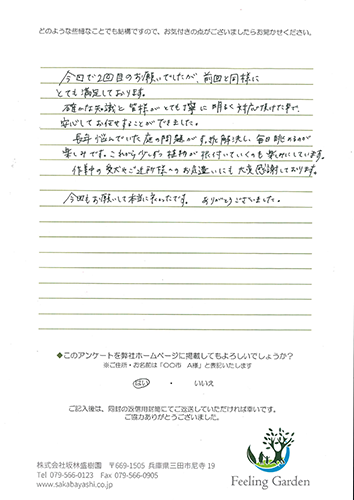 どのような些細なことでも結構ですので、お気付きの点がございましたらお聞かせください。
今回で2回目のお願いでしたが、前回と同様に
とても満足しております。
確かな知識と皆様がとても丁寧に明るく対応頂けた事で、
安心してお任せすることができました。
長年悩んでいた庭の問題がすっきり解決し、毎日眺めるのが
楽しみです。これから少しずつ植物が根付いていくのも楽しみにしています。
作業中の愛犬やご近所様へのお気遣いにも大変感謝しております。
今回もお願いして本当によかったです。ありがとうございました。
◆このアンケートを弊社ホームページに掲載してもよろしいでしょうか?
※ご住所・お名前は「○○市 A様」と表記いたします
はい ・ いいえ
ご記入後は、同封の返信用封筒にてご返送していただければ幸いです。
ご協力ありがとうございました。
株式会社坂林盛樹園 〒669-1505 兵庫県三田市尼寺 19
Tel 079-566-0123 Fax 079-566-0905
www.sakabayashi.co.jp
Feeling Garden